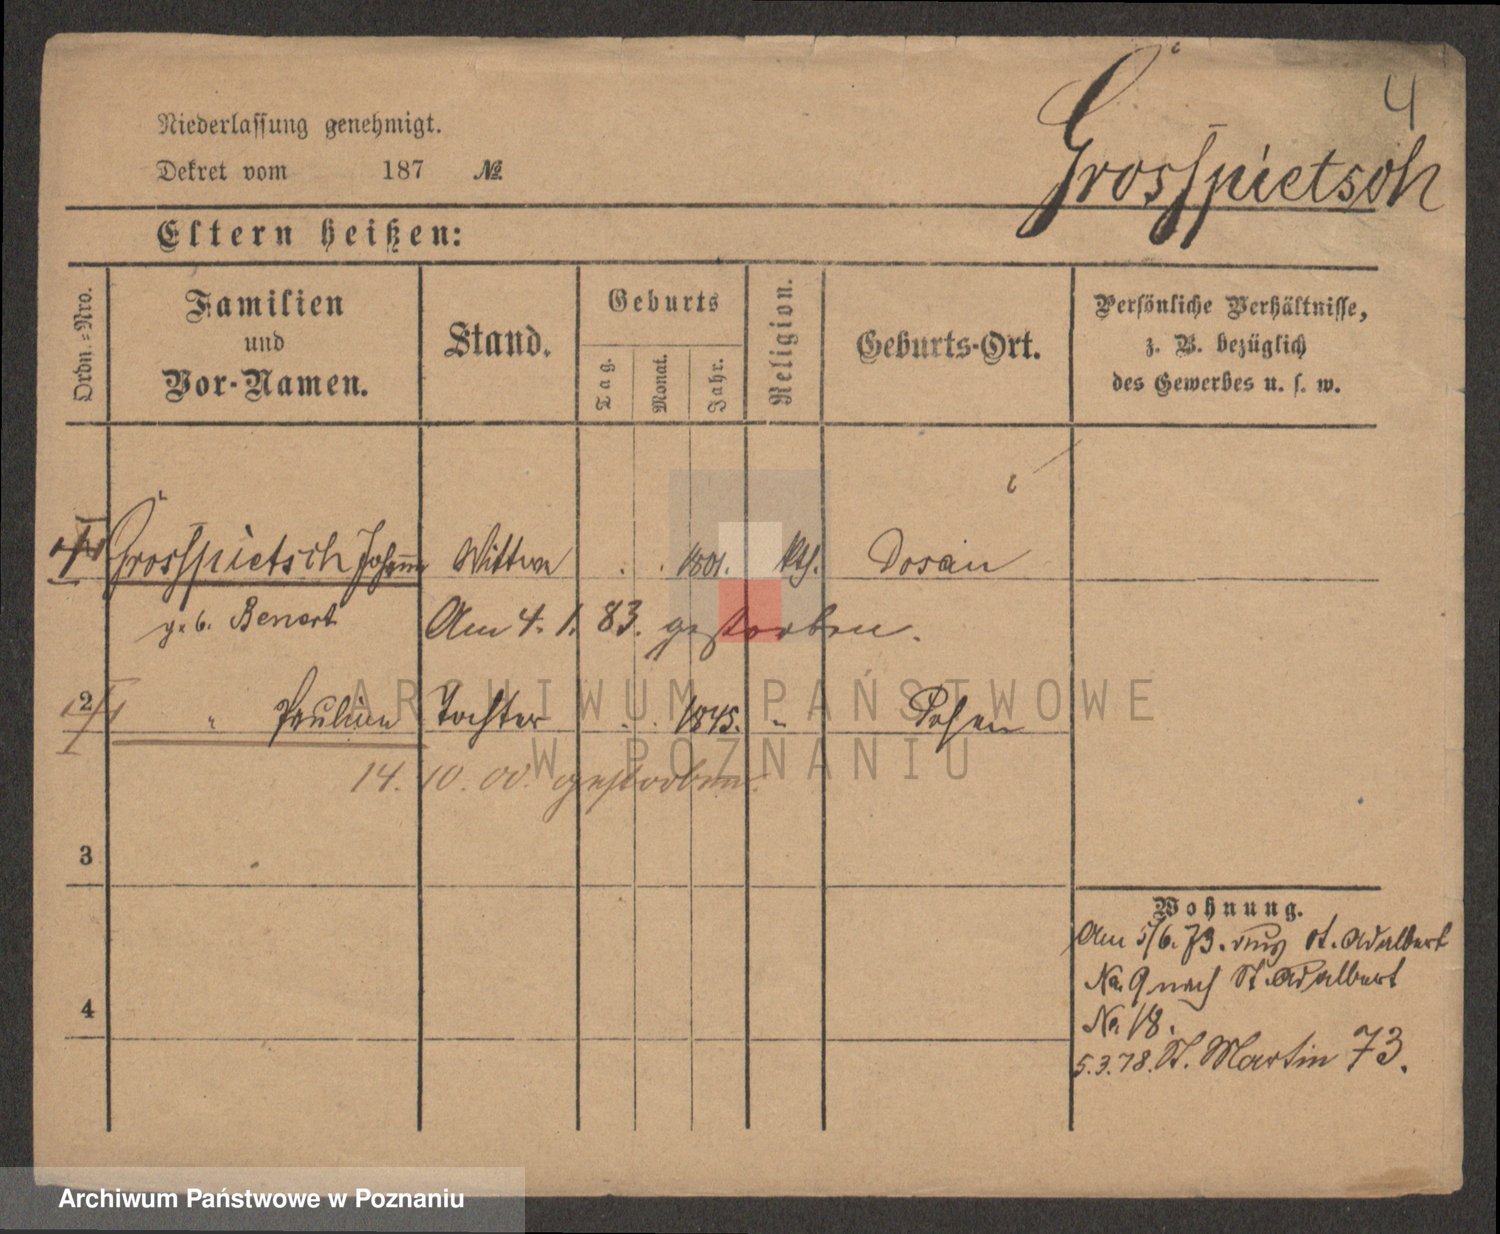 4
Niederlassung genehmigt.
Grosspietsch
Dekret vom 187 №
Eltern heißen:
Ordn.=Nro.
Familien
und
Vor-Namen.
Stand.
Geburts
Tag.
Monat.
Jahr.
Religion.
Geburts-Ort.
Persönliche Verhältnisse,
z. B. bezüglich
des Gewerbes u. s. w.
1 Grosspietsch Johanna Wittwe . . 1801. kth. Dosain
geb. Benert Am 4. 1. 83. gestorben.
2 " Pauline Tochter . . 1845. " Posen
14. 10. 00. gestorben.
3
Wohnung.
Am 5/6. 73. aus St. Adalbert
No. 9 nach St. Adalbert
4
No. 18.
5.3.78. St. Martin 73.
ARCHIWUM PAŃSTWOWE
W POZNANIU
Archiwum Państwowe w Poznaniu